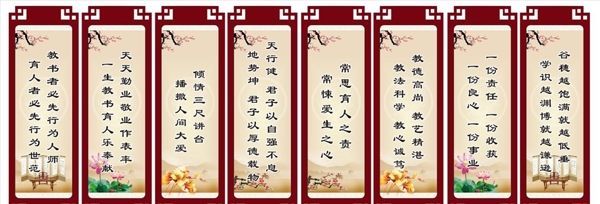 谷穗越饱满就越低垂
学识越渊博就越谦逊
一份责任 一份收获
一份良心 一份事业
教德高尚 教艺精湛
教法科学 教心诚笃
常思育人之责
常悚爱生之心
天行健 君子以自强不息
地势坤 君子以厚德载物
倾情三尺讲台
播撒人间大爱
天天勤业敬业作表率
一生教书育人乐奉献
教书者必先行为人师
育人者必先行为世范